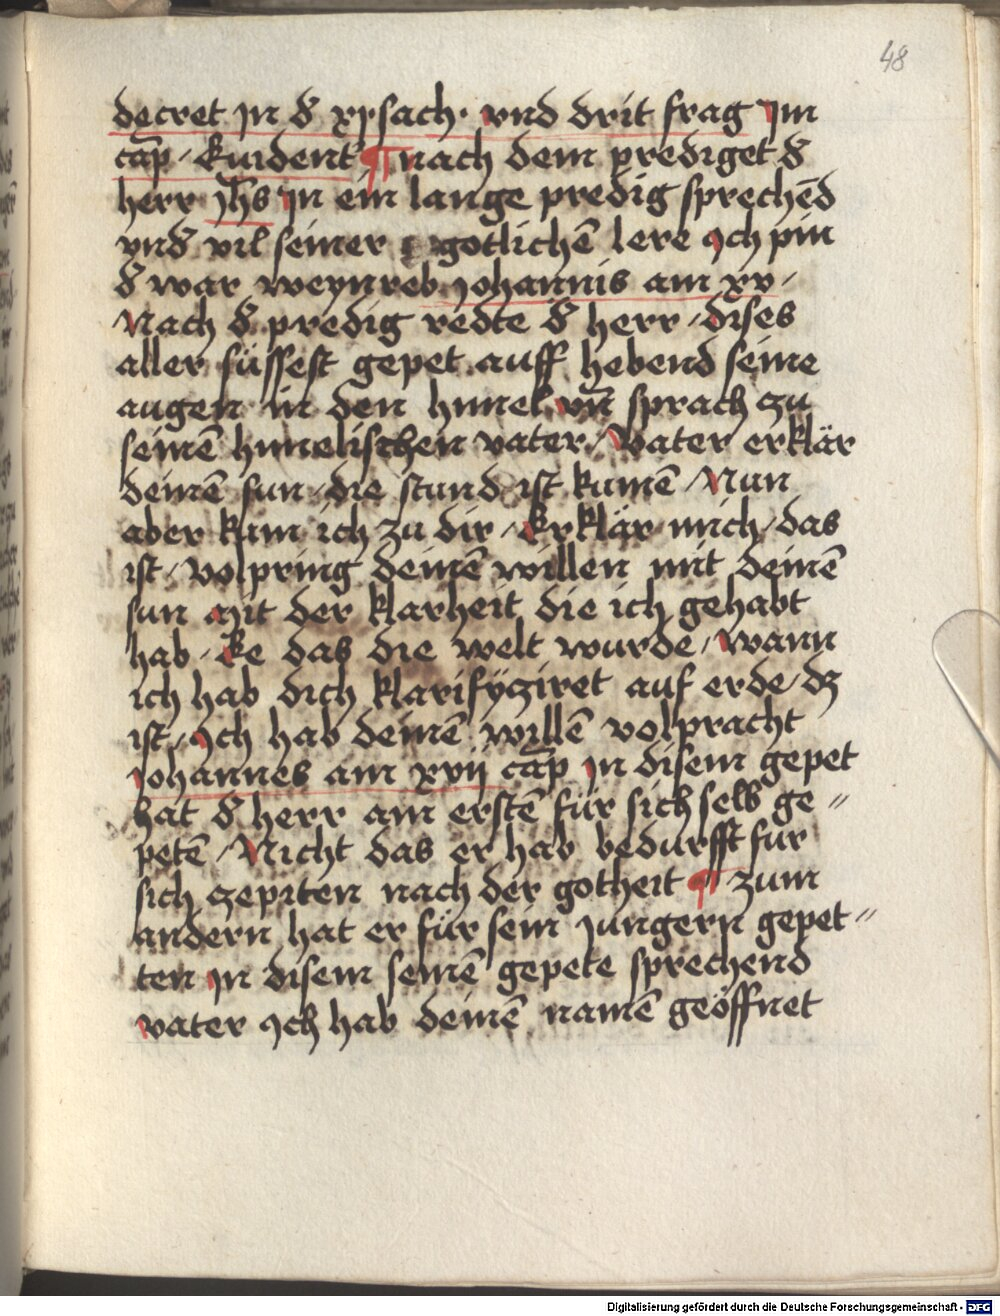 48
decret jn d̕ xj sach · vnd drit frag Jm
cap̄ · Euident ¶ nach dem prediget d̕
herr jh̄s Jn ein lange predig sprechēd
vnd̕ vil seiner gotlichē lere Jch pin
d̕ war weynreb johannis am xv ·
Nach d̕ predig redte d̕ herr / dises
aller süssest gepet auff hebend seine
augen in den himel vn̄ sprach zu
seinē himelischen vater / Vater erklär
deinē sun / die stund ist kumē / Nun
aber kum ich zu dir / Erklär mich / das
ist / volpring deinē willen mit deinē
sun mit der klarheit die ich gehabt
hab · Ee das die welt wurde / wann
ich hab dich klarifyziret auf erde / dz
ist / Jch hab deinē willē volpracht
Johannes am xvij cap̄ Jn disem gepet
hat d̕ herr am erstē für sich selb ge //
petē / Nicht das er hab bedürfft für
sich zepiten nach der gotheit ¶ zum
andern hat er für sein jungern gepet //
ten jn disem seinē gepete sprechend
vater Jch hab deinē namē geöffnet
Digitalisierung gefördert durch die Deutsche Forschungsgemeinschaft - DFG